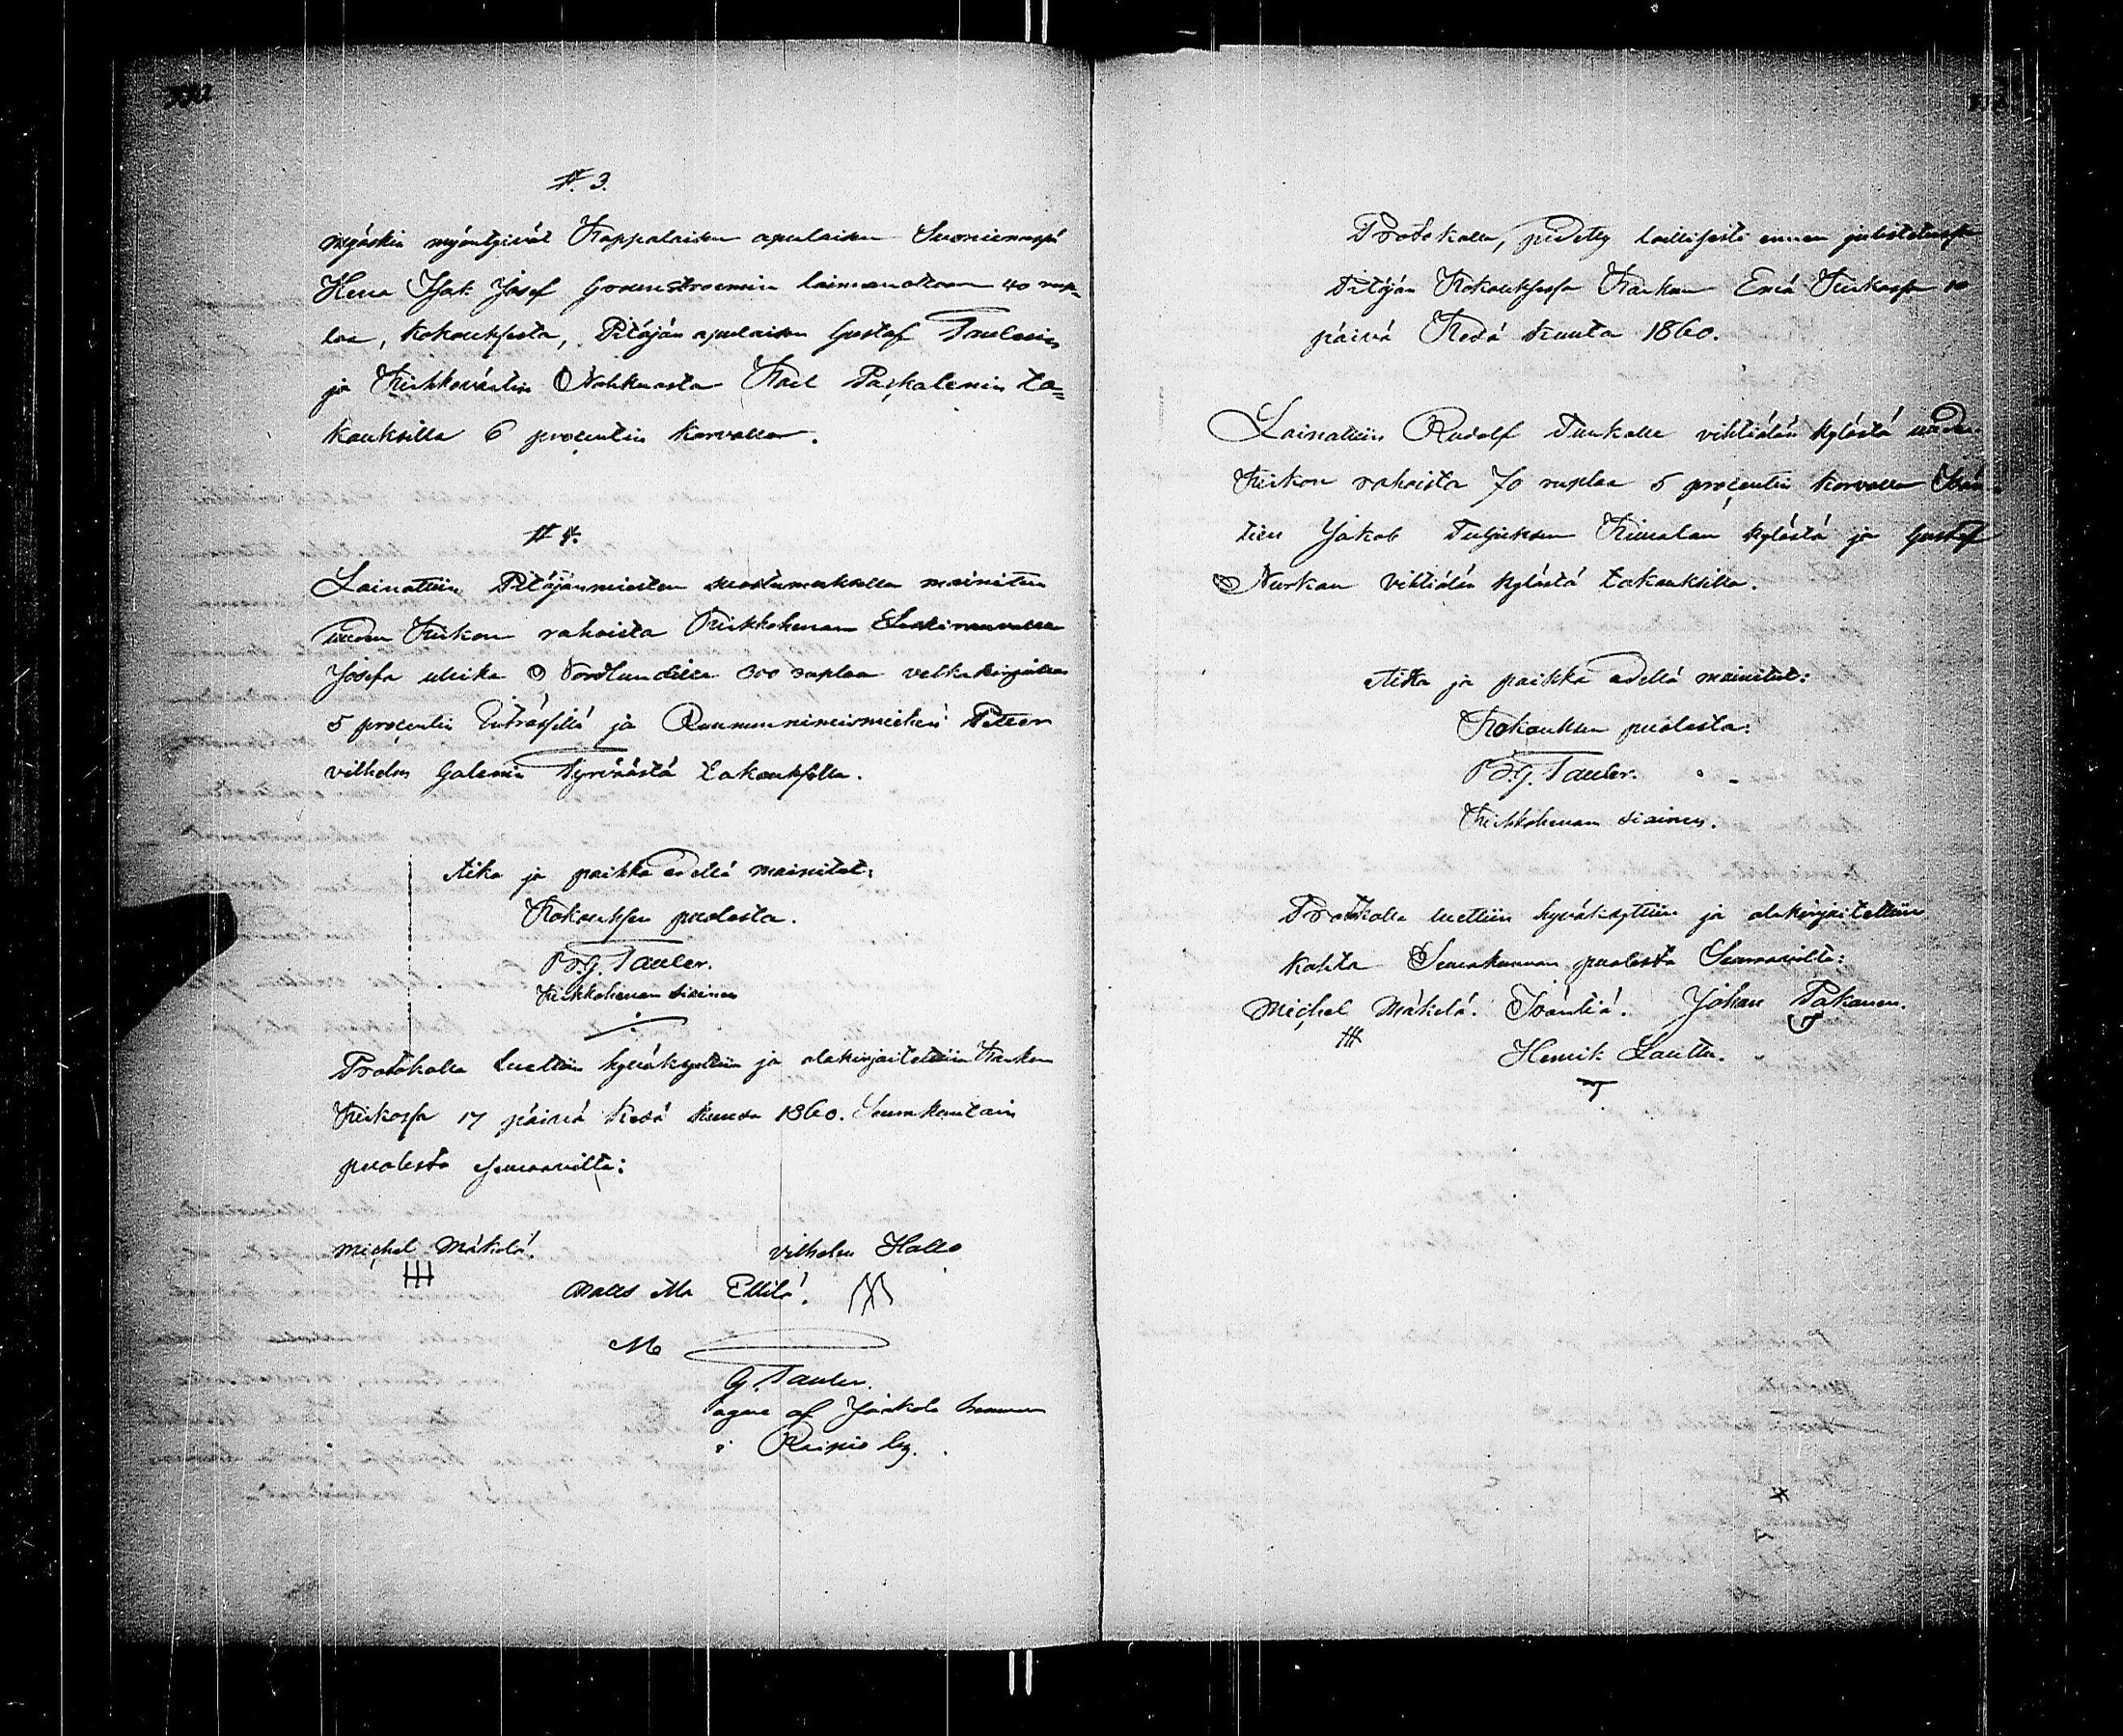 # 3.
myöskin myöntyivät Kappalaisen apulaisen Suoniemessä
Herra Isak Josef Grounstroemin lainanottoon 40 rup-
laa, kokouksesta, Pitäjän apulaisen Gustaf Taulerin
ja Kirkkoväärtin Nohkuasta Karl Paskalenin ta=
kauksilla 6 procentin korvalla.
# 4.
Lainattiin Pitäjänmiesten suostumuksella mainitun
uuden Kirkon rahoista Kirkkoherran
Josefa ulrika Nordlundille 300 ruplaa velkakirjalla
5 procentin ja Ruununnimismiehen Petter
vilhelm Galenin Tyrväästä takauksella.
Aika ja paikka edellä mainitut:
Kokouksen puolesta.
G. Tauler.
Kirkkoherran siainen
Protokolla luettiin hyväksyttiin ja alakirjoitettiin Karkun
Kirkossa 17 päivä Kesä kuuta 1860. Seurakuntain
puolesta seuraavilta:
Michel Mäkelä. vilhelm Hallo
Matts Ellilä.
M
G. Tauler.
ägare af Jaakola hemman
i Rainio by.
Protokolla, pidetty laillisesti ennen julistetussa
Pitäjän Kokouksessa Karkun Emä Kirkossa 10
päivä Kesä kuuta 1860.
Lainattiin Rudolf Turkalle vihtiälän kylästä uuden
Kirkon rahoista 70 ruplaa 5 procentin korvalla
Jakob kylästä ja Gustaf
Nurkan vihtiälän kylästä takauksilla.
Aika ja paikka edellä mainitut:
Kokouksen puolesta:
G. Tauler.
Kirkkoherran siainen.
Protokolla luettiin hyväksyttiin ja alakirjoitettiin
kohta Seurakunnan puolesta Seuraavilta:
Michel Mäkelä. Johan Pakanen.
Henrik Lautta.